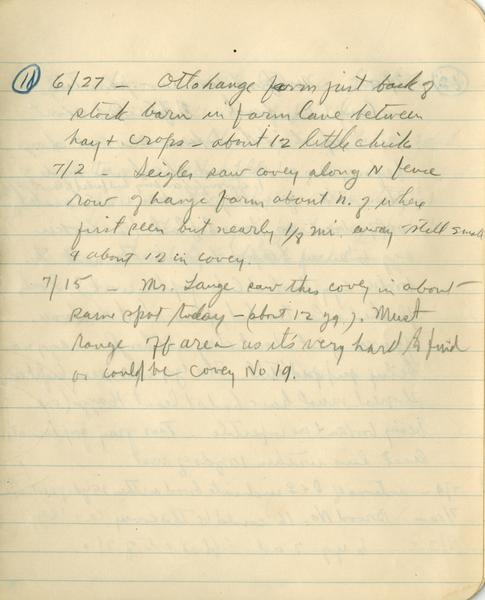 11 6/27 – Otto Lange farm just back of
stock barn in farm lane between
hay + crops – about 12 little chicks
7/2 – Seigler saw covey along N fence
row of Lange farm about N. of where
first seen but nearly 1/8 mi. away still small
& about 12 in covey.
7/15 – Mr. Lange saw this covey in about
same spot today – (about 12 yg.). Must
range off area as it's very hard to find
or could be covey No 19.